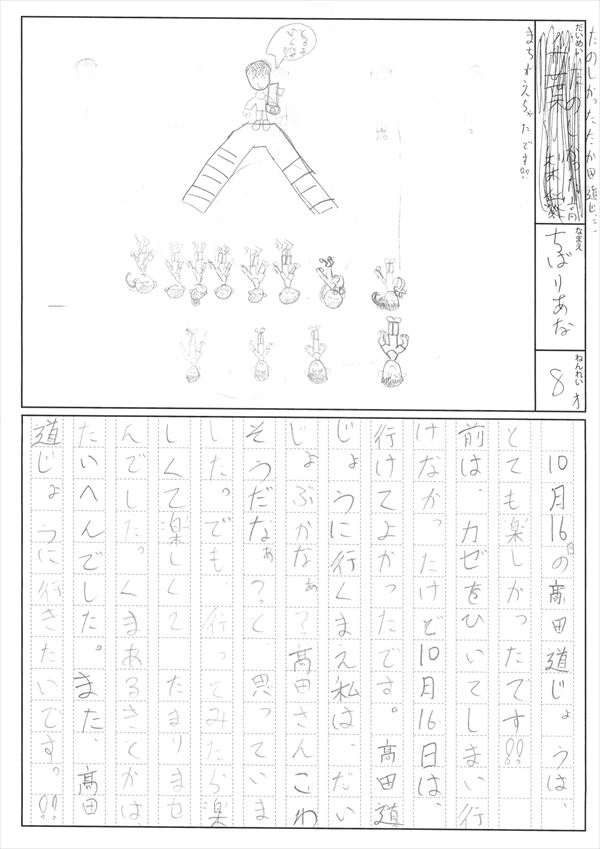 たのしかったたか田道じょう
だいめい
なまえ
ちばりあな
ねんれい
8才
まちがえちゃたです!!
10月16日の高田道じょうは、
とても楽しかったです!!
前は、カゼをひいてしまい行
けなかったけど10月16日は、
行けてよかったです。高田道
じょうに行くまえ私は、だい
じょぶかなぁ?高田さんこわ
そうだなぁ?っと 思っていま
した。でも、行ってみたら楽
しくて楽しくて たまりませ
んでした。くまあるきとかは、
たいへんでした。また、高田
道じょうに行きたいです。!!